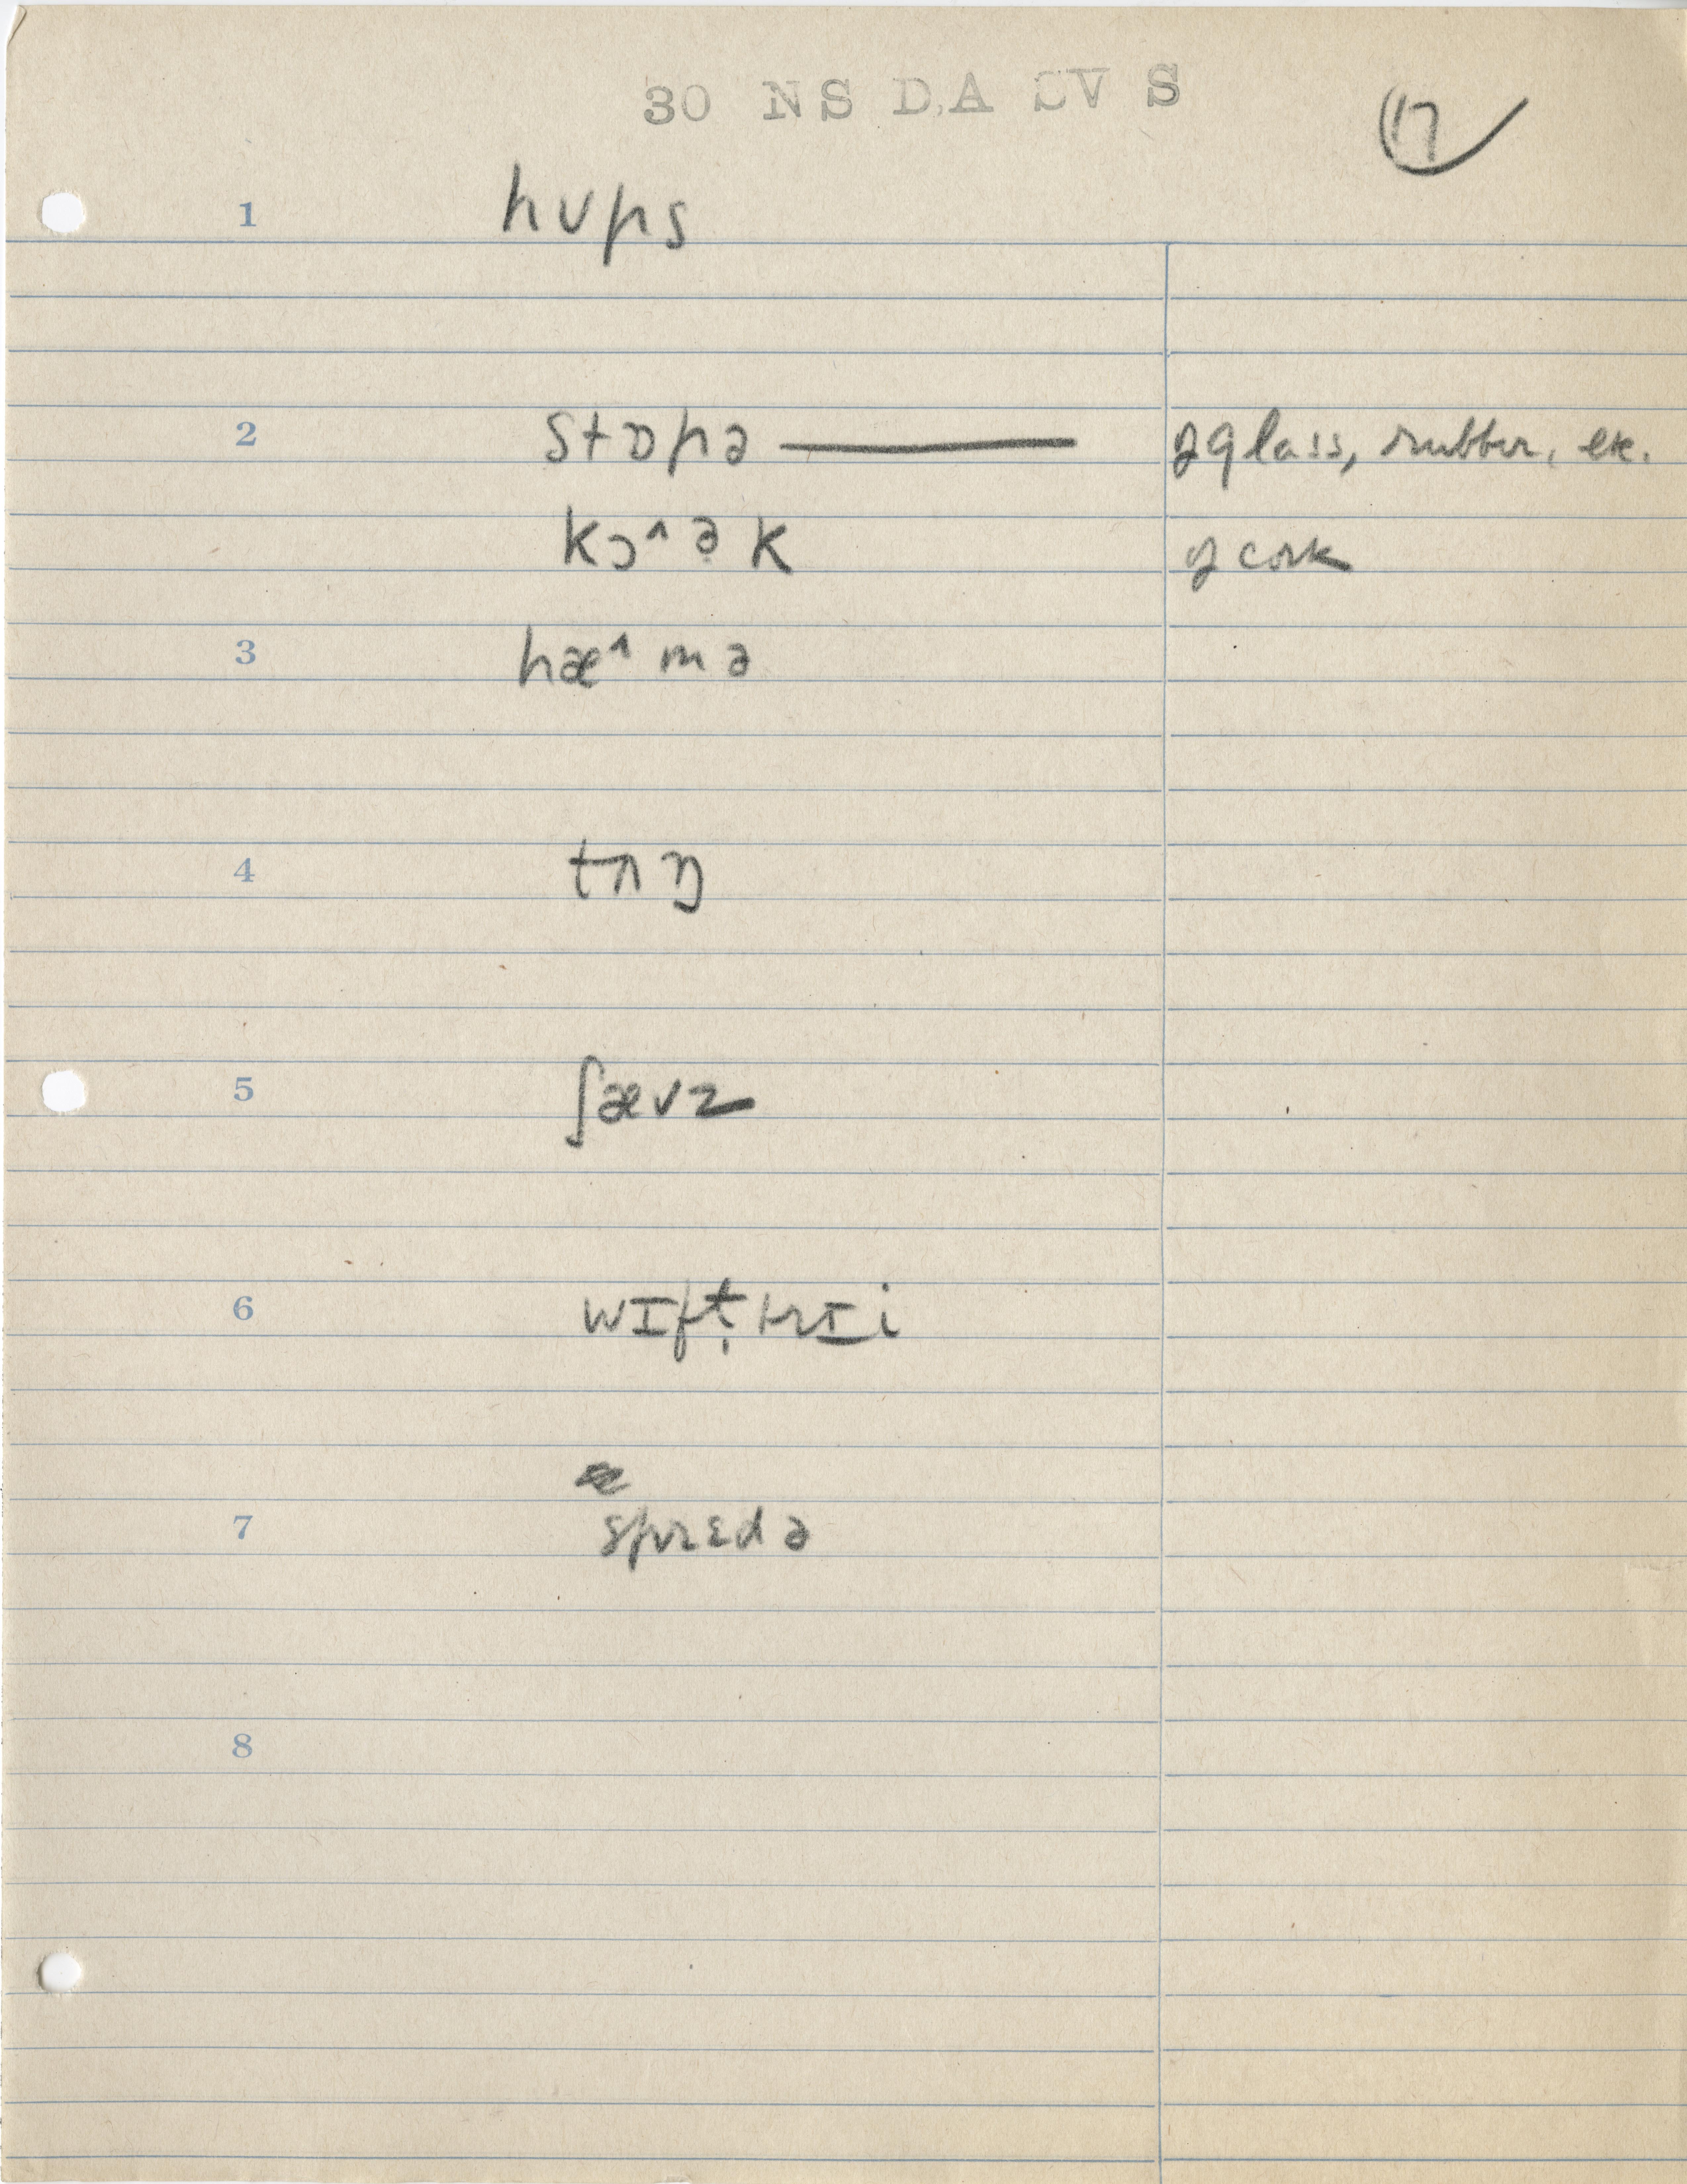 30 NS DA SV S
17
1 hʊps
2 stɒpə —— of glass, rubber, etc.
kɔ^ə̣k of cork
3 hæ^mə
4 tʌŋ
5 ʃævz
6 wɪpt̬rɪi
7 sprɛdə
8